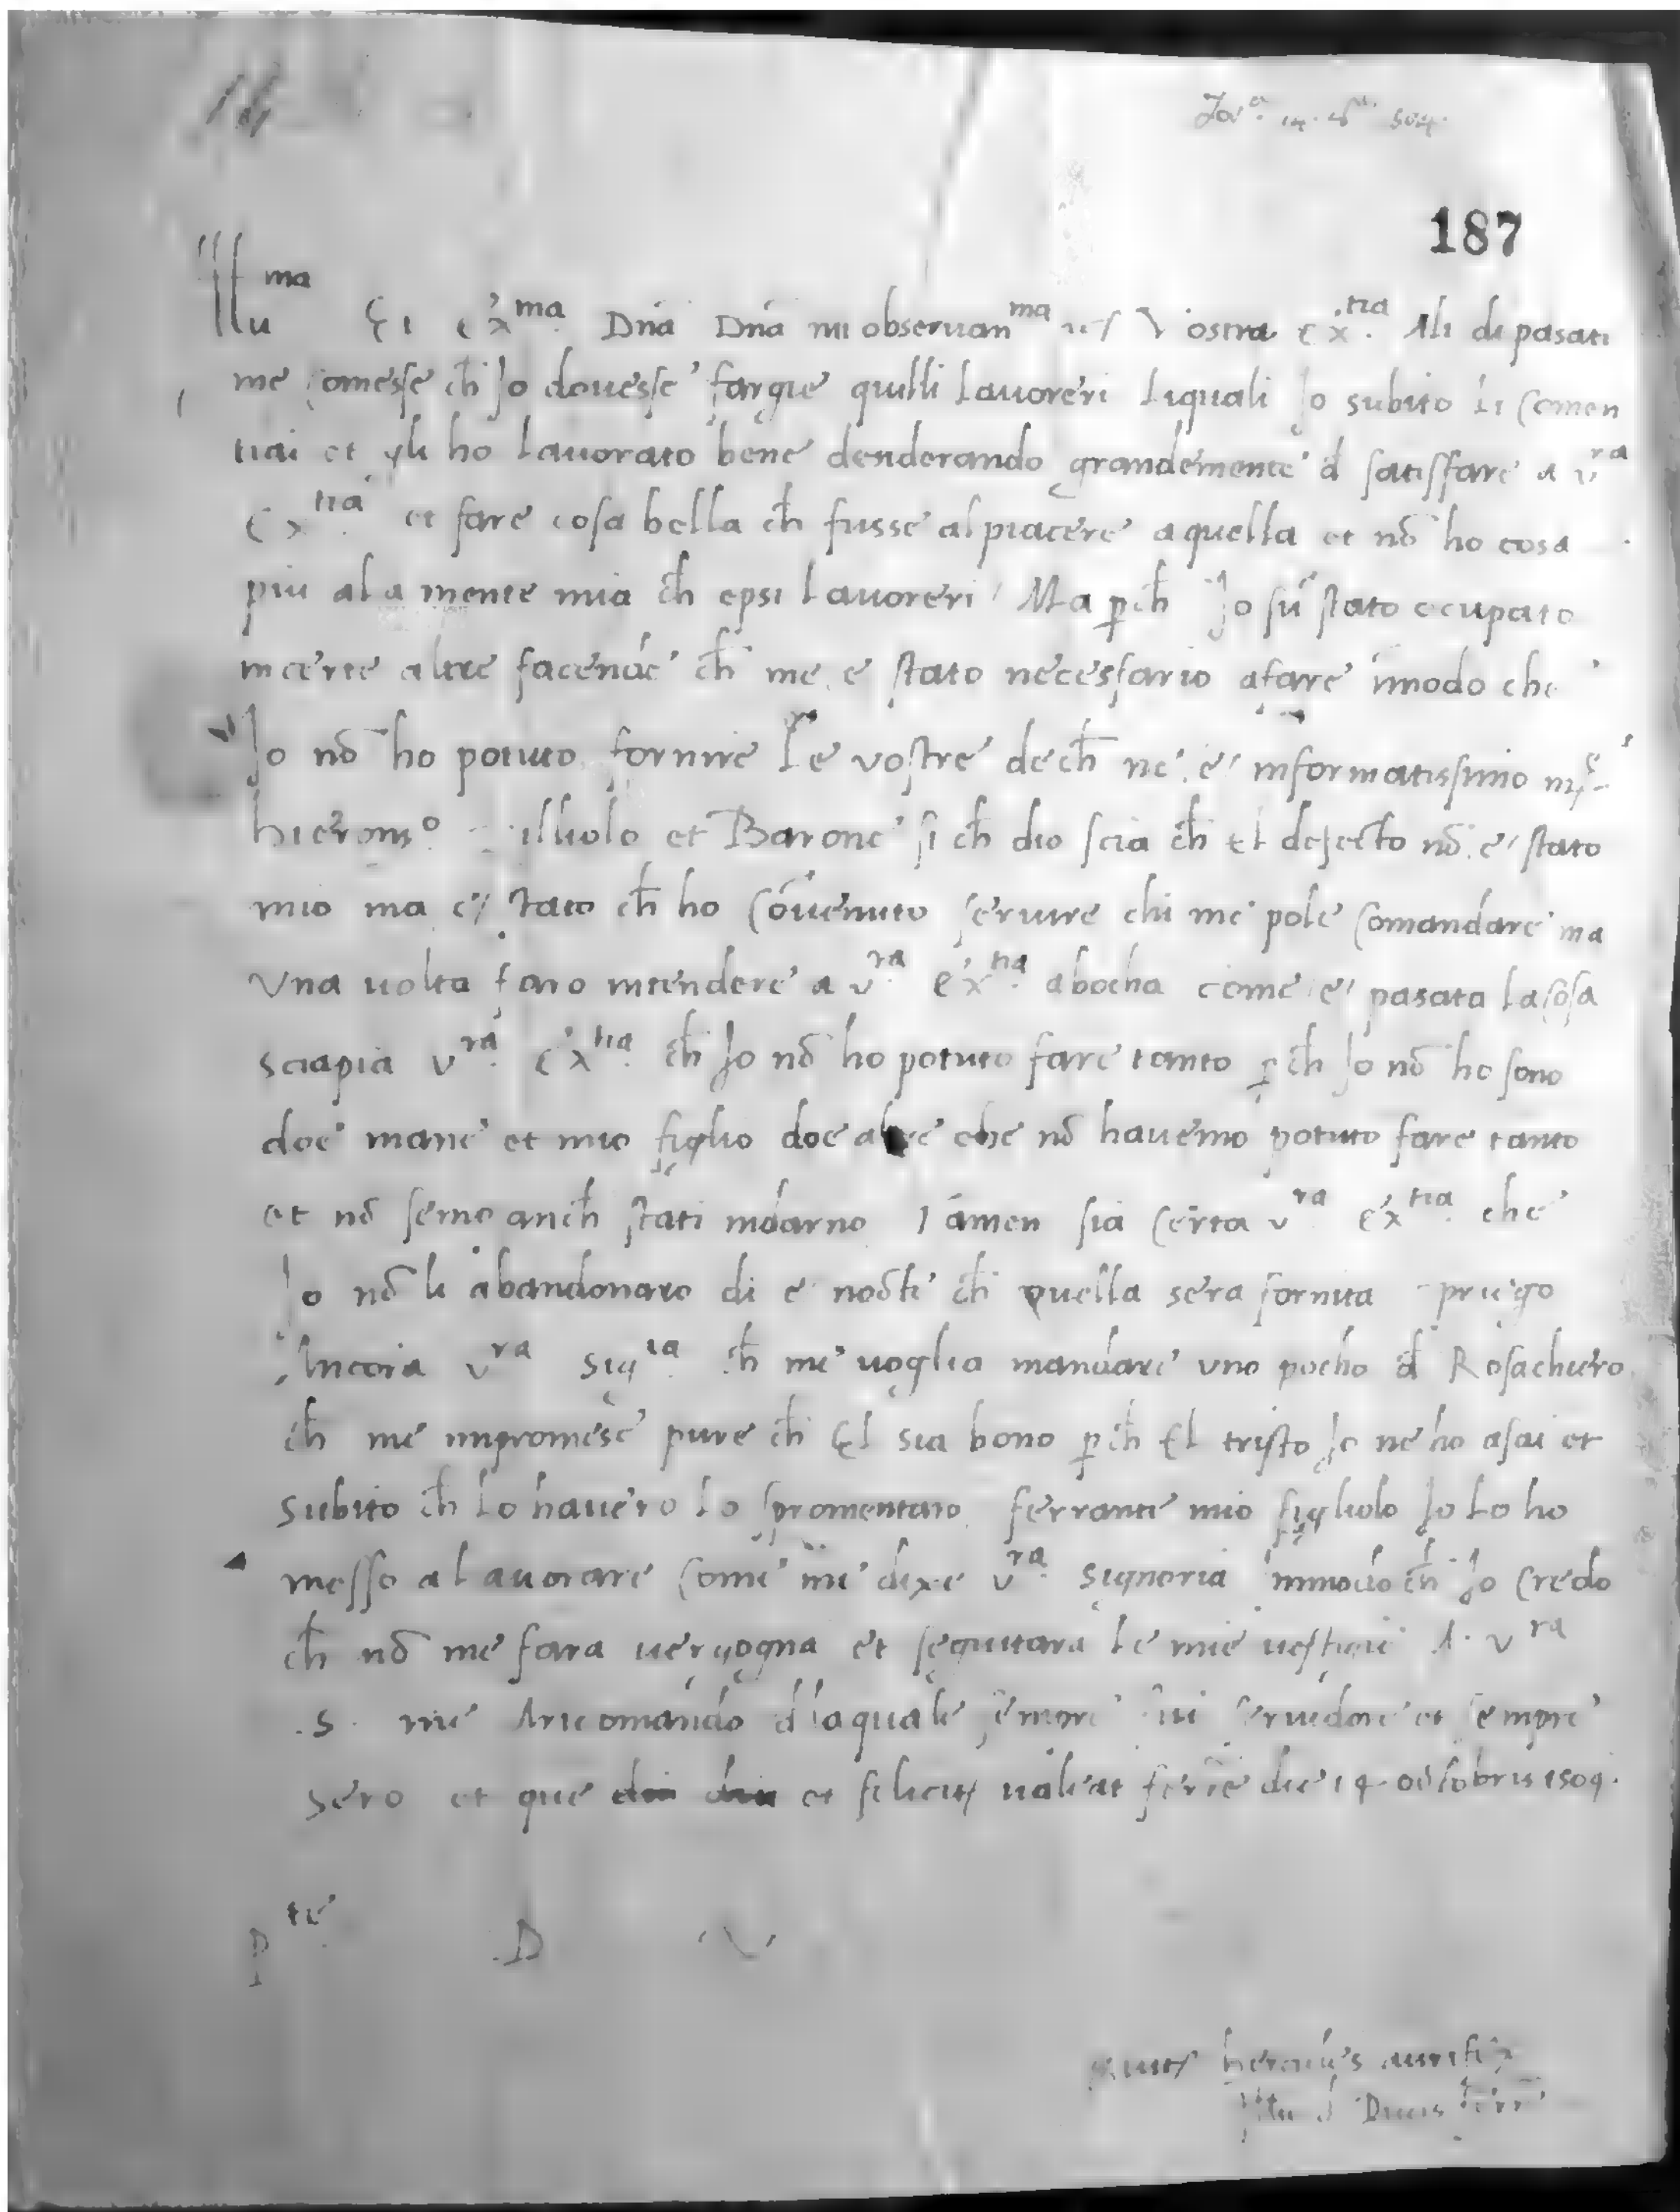 187
Illu^ma Et ex^ma Dna Dna mi observan^ma Vostra ex^tia Ali di pasati
me comesse ch̄ Io dovesse fargie quilli lavoreri liquali Io subito li comen
tiai et gli ho lavorato bene desiderando grandemente d̄ satisffare a v^ra
Ex^tia et fare cosa bella ch̄ fusse al piacere a quella et nō ho cosa
piu ala mente mia ch̄ epsi lavoreri / Ma p̄ch̄ Io sū stato ocupato
incerte altre facende ch̄ me e stato necessario afare īmodo che
Io nō ho potuto fornire Le vostre dech̄ ne e informatissimo
hieronimo et Barone si ch̄ dio scia ch̄ El defecto nō e/ stato
mio ma e/ stato ch̄ ho cōvenuto servire chi me pole comandare ma
Una volta faro intendere a v^ra ex^tia abocha come e/ pasata la cosa
sciapia v^ra ex^tia ch̄ Io nō ho potuto fare tanto p̄ch̄ Io nō ho sono
doe mane et mio figlio doe altre che nō havemo potuto fare tanto
et nō semo anch̄ stati indarno Tamen sia certa v^ra ex^tia che
Io nō li abandonaro di e nocti ch̄ quella sera fornita priego
Ancora v^ra Sig^ia ch̄ me voglia mandare uno pocho d̄ Rosachiero
ch̄ me impromese pure ch̄ El sia bono p̄ch̄ El tristo Io ne ho asai et
subito ch̄ lo havero lo spromentaro ferrante mio figliolo Io Lo ho
messo a lavorare come me dixe v^ra signoria inmodo ch̄ Io credo
ch̄ nō me fara vergogna et seguitara le mie vestigie A. v^ra
.S. me Aricomando d̄laquale sempre fui servidore et sempre
sero et que et valeat ferrie die 14 octobris 1504.
p^te D V
hercules aurifex
Ducis